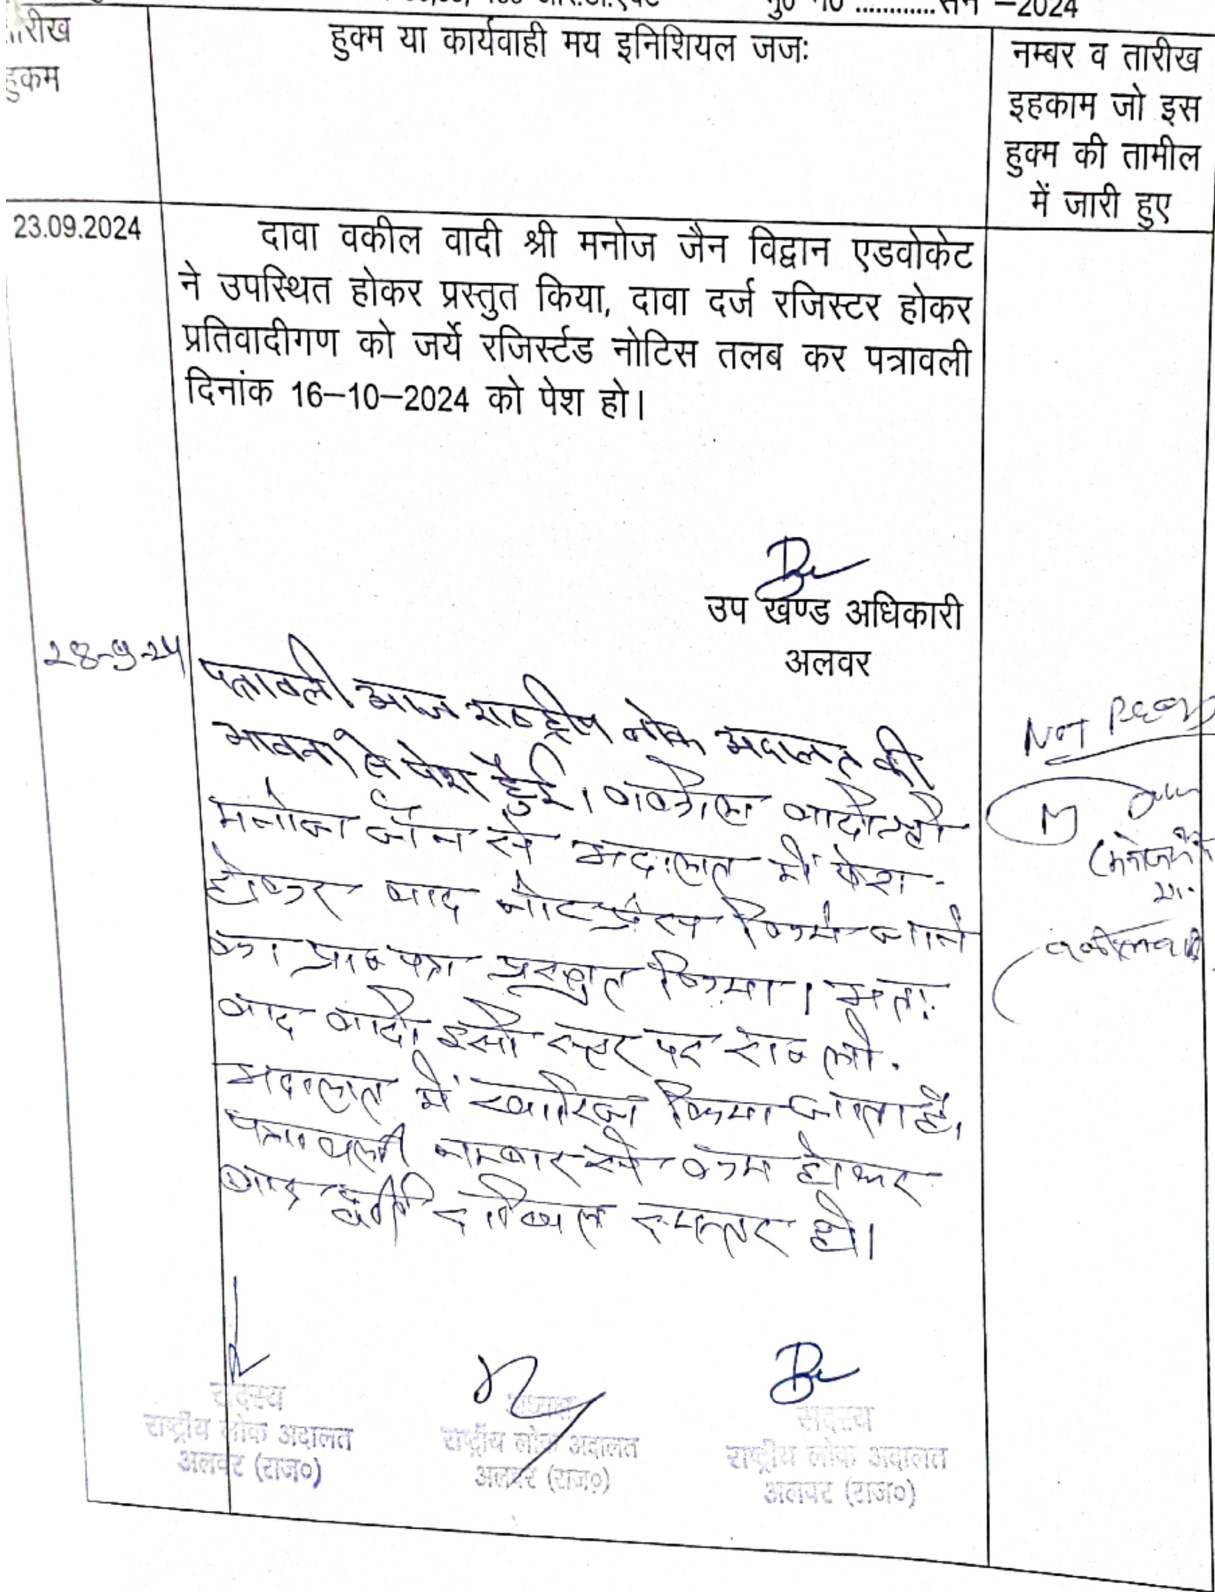 मु0 न0 ............सन –2024
तारीख
हुकम
हुक्म या कार्यवाही मय इनिशियल जजः
नम्बर व तारीख
इहकाम जो इस
हुक्म की तामील
में जारी हुए
23.09.2024
दावा वकील वादी श्री मनोज जैन विद्वान एडवोकेट
ने उपस्थित होकर प्रस्तुत किया, दावा दर्ज रजिस्टर होकर
प्रतिवादीगण को जर्ये रजिर्स्टड नोटिस तलब कर पत्रावली
दिनांक 16–10–2024 को पेश हो।
उप खण्ड अधिकारी
अलवर
28-9-24
पत्रावली आज राष्ट्रीय लोक अदालत की
भावना से पेश हुई। वकील वादी श्री
मनोज जैन ने अदालत में पेश
होकर वाद नोट प्रेस किये जाने
का प्रा० पत्र प्रस्तुत किया। अतः
वाद वादी इसी स्तर पर रा० लो.
अदालत में खारिज किया जाता है।
पत्रावली नम्बर से कम होकर
बाद पूर्ति दाखिल दफ्तर हो।
Not
(मनोज जैन
वकील वादी
सदस्य
राष्ट्रीय लोक अदालत
अलवर (राज०)
अध्यक्ष
राष्ट्रीय लोक अदालत
अलवर (राज०)
सदस्य
राष्ट्रीय लोक अदालत
अलवर (राज०)